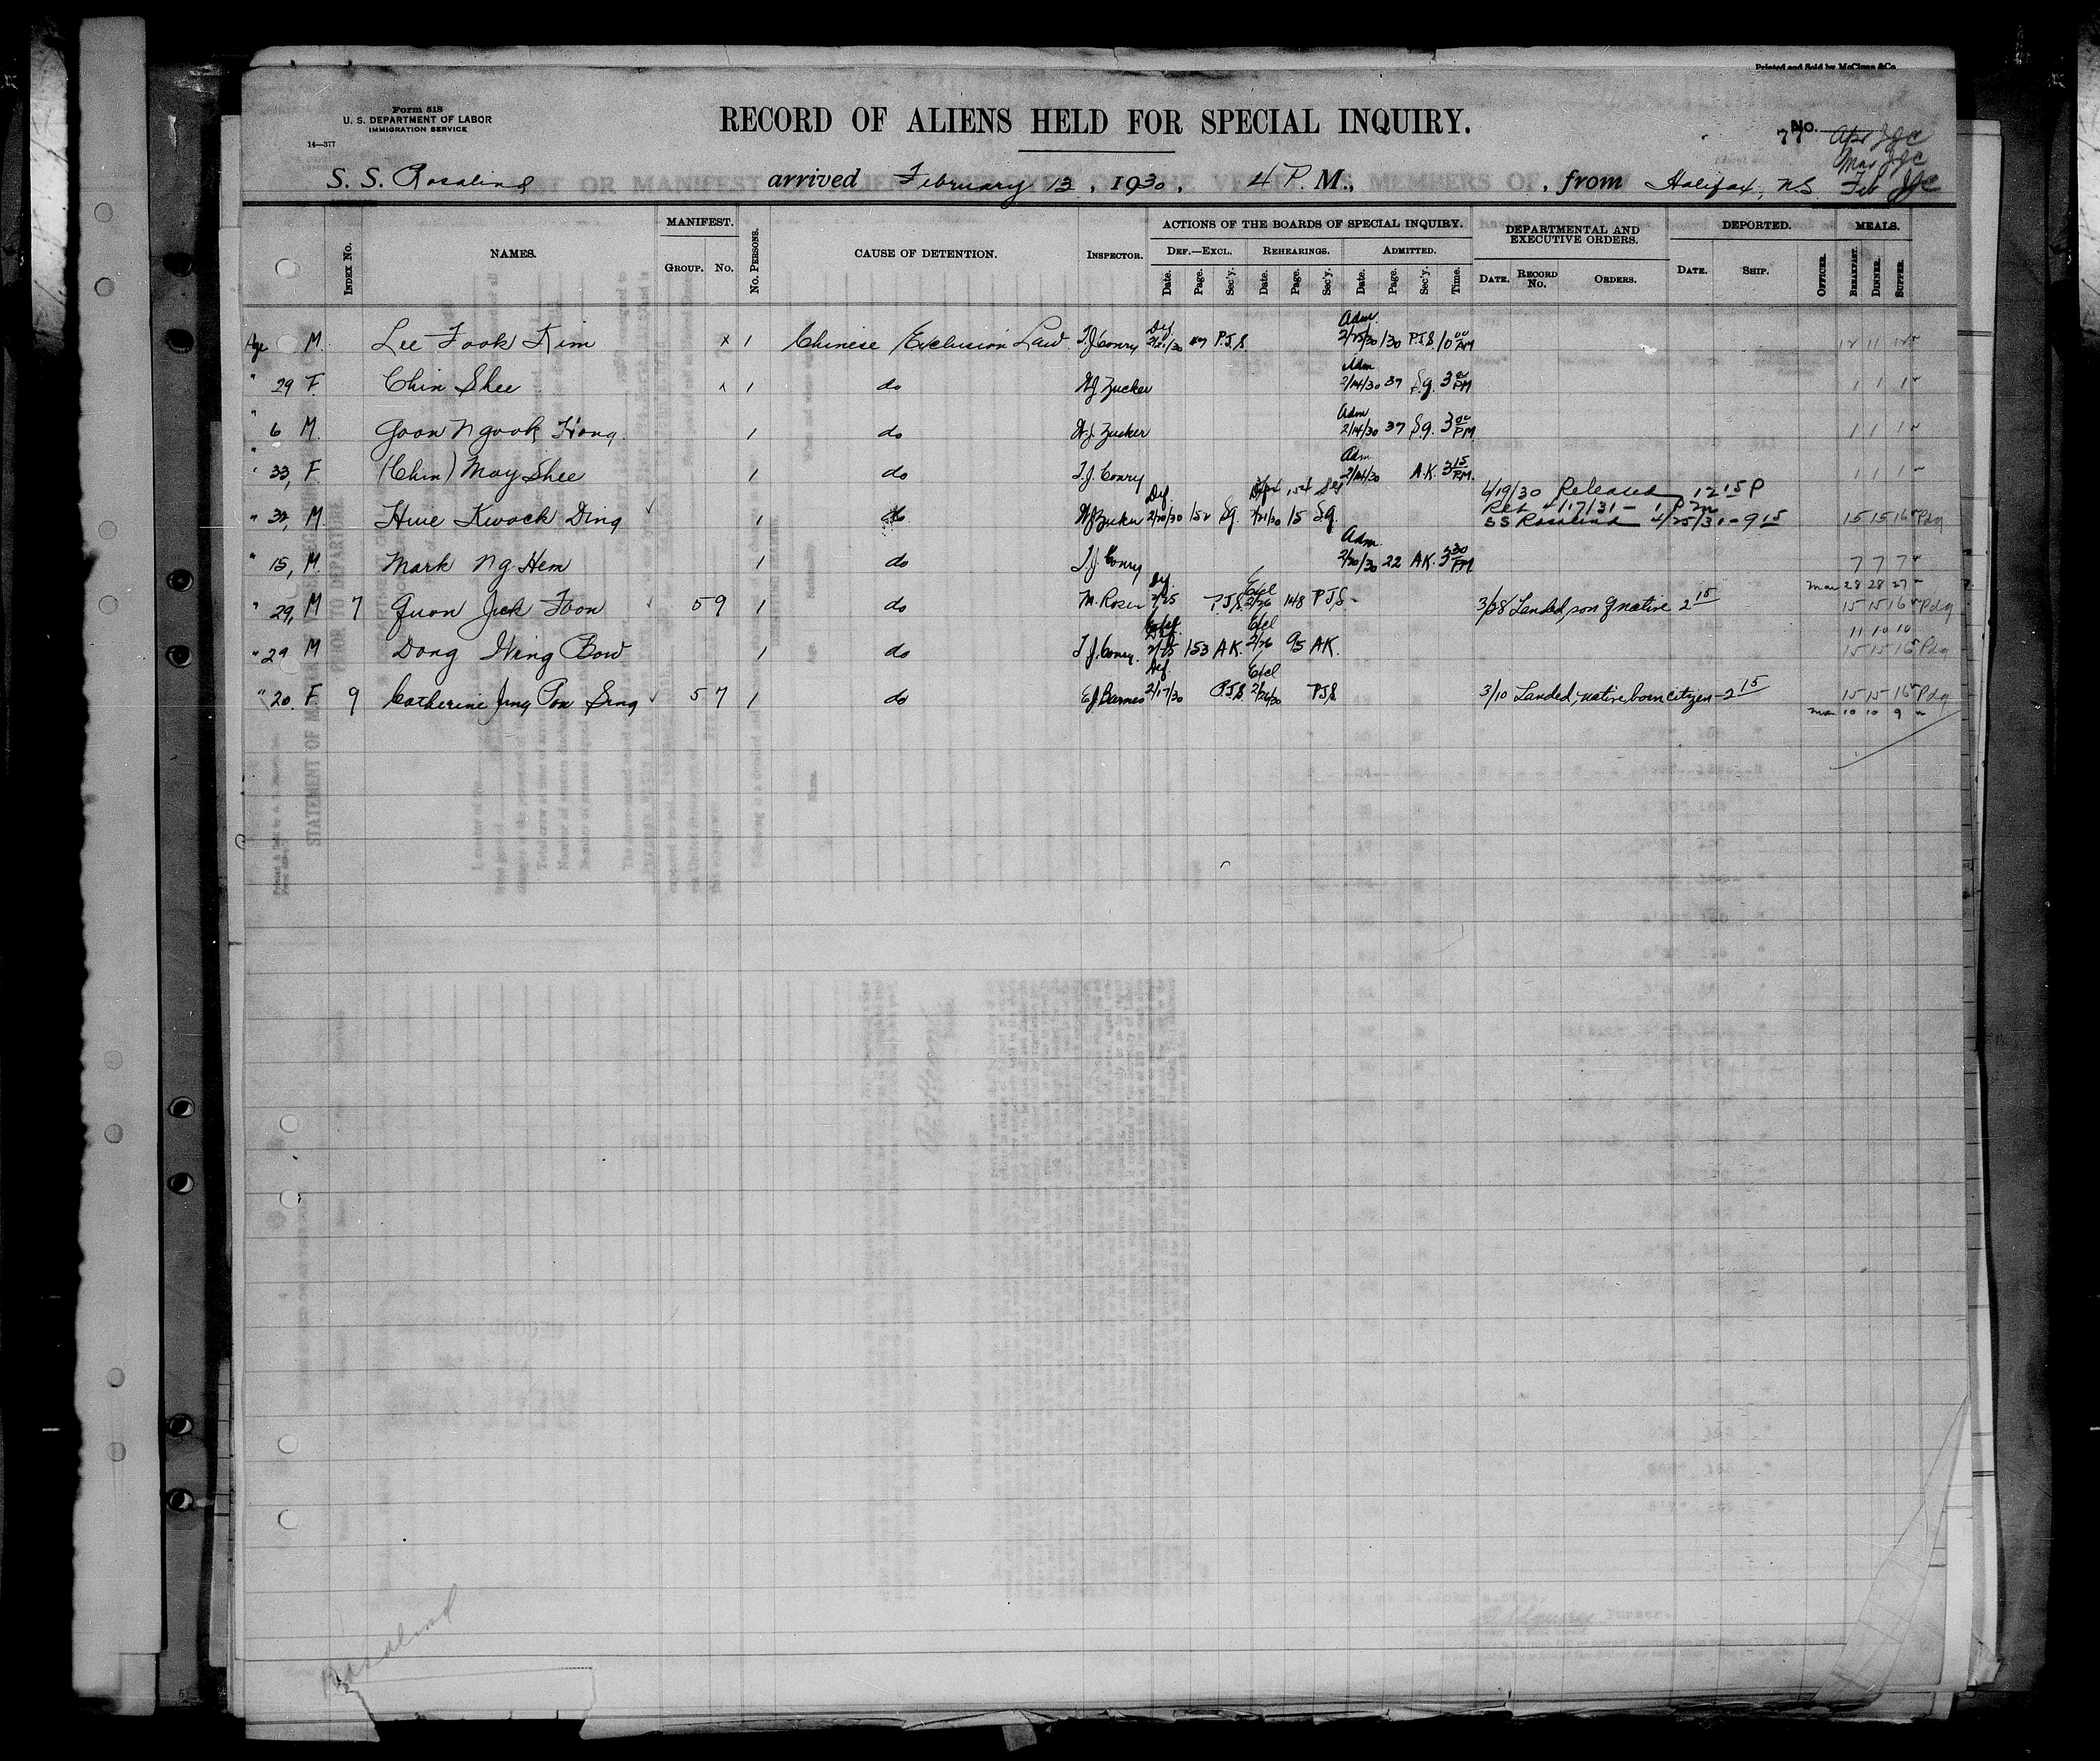 Printed and Sold by McClunn & Co.
Form 518
U. S. DEPARTMENT OF LABOR
IMMIGRATION SERVICE
14—377
RECORD OF ALIENS HELD FOR SPECIAL INQUIRY.
77 No. Apr JJC
May JJC
S. S. Rosalind arrived February 13, 1930, 4 P. M., from Halifax, N.S. Feb JJC
INDEX No. NAMES. MANIFEST. GROUP. No. No. PERSONS. CAUSE OF DETENTION. INSPECTOR. ACTIONS OF THE BOARDS OF SPECIAL INQUIRY. DEPARTMENTAL AND EXECUTIVE ORDERS. DEPORTED. MEALS.
DEF.—EXCL. REHEARINGS. ADMITTED.
Date. Page. Sec'y. Date. Page. Sec'y. Date. Page. Sec'y. Time. DATE. RECORD No. ORDERS. DATE. SHIP. OFFICER. BREAKFAST. DINNER. SUPPER.
Age M. Lee Fook Kim x 1 Chinese Exclusion Law T.J. Conry Def. 2/21/30 P.J.S. Adm 2/25/30 130 P.J.S. 10 00 AM 12 11 12
" 29 F. Chin Shee x 1 do W.J. Zucker Adm 2/14/30 37 S.g. 3 00 PM 1 1 1
" 6 M. Goon Ngook Hong 1 do W.J. Zucker Adm 2/14/30 37 S.g. 3 00 PM 1 1 1
" 33, F. (Chin) Moy Shee 1 do T.J. Conry Adm 2/14/30 A.K. 3 15 PM. 1 1 1
4/19/30 Released 12 15 P
Reb 4/17/31 - 1 P m
" 32, M. Huie Kwock Ding 1 do W.J. Zucker Def. 2/20/30 152 S.g. 2/21/30 15 S.g. SS Rosalind 4/25/31 - 9 15 15 15 16 Pdg
" 15, M. Mark Ng Hem 1 do T.J. Conry Adm. 2/20/30 22 A.K. 3 30 PM 7 7 7
Mar 28 28 27
" 29, M 7 Quon Jick Foon 59 1 do M. Rosen Def. 2/25 P.J.S. Excl 2/26 148 P.J.S. 3/28 Landed, son of native 2 15 15 15 16 Pdg
11 10 10
" 29 M Dong Wing Bow 1 do T.J. Conry. Def. 2/25 153 A.K. Excl 2/26 95 A.K. 15 15 16 Pdg
" 20. F. 9 Catherine Jung Pow Sing 57 1 do E.J. Barnes Def. 2/17/30 P.J.S. Excl 2/26/30 P.J.S. 3/10 Landed, native born citizen - 2 15 15 15 16 Pdg
Mar 10 10 9
Rosalind